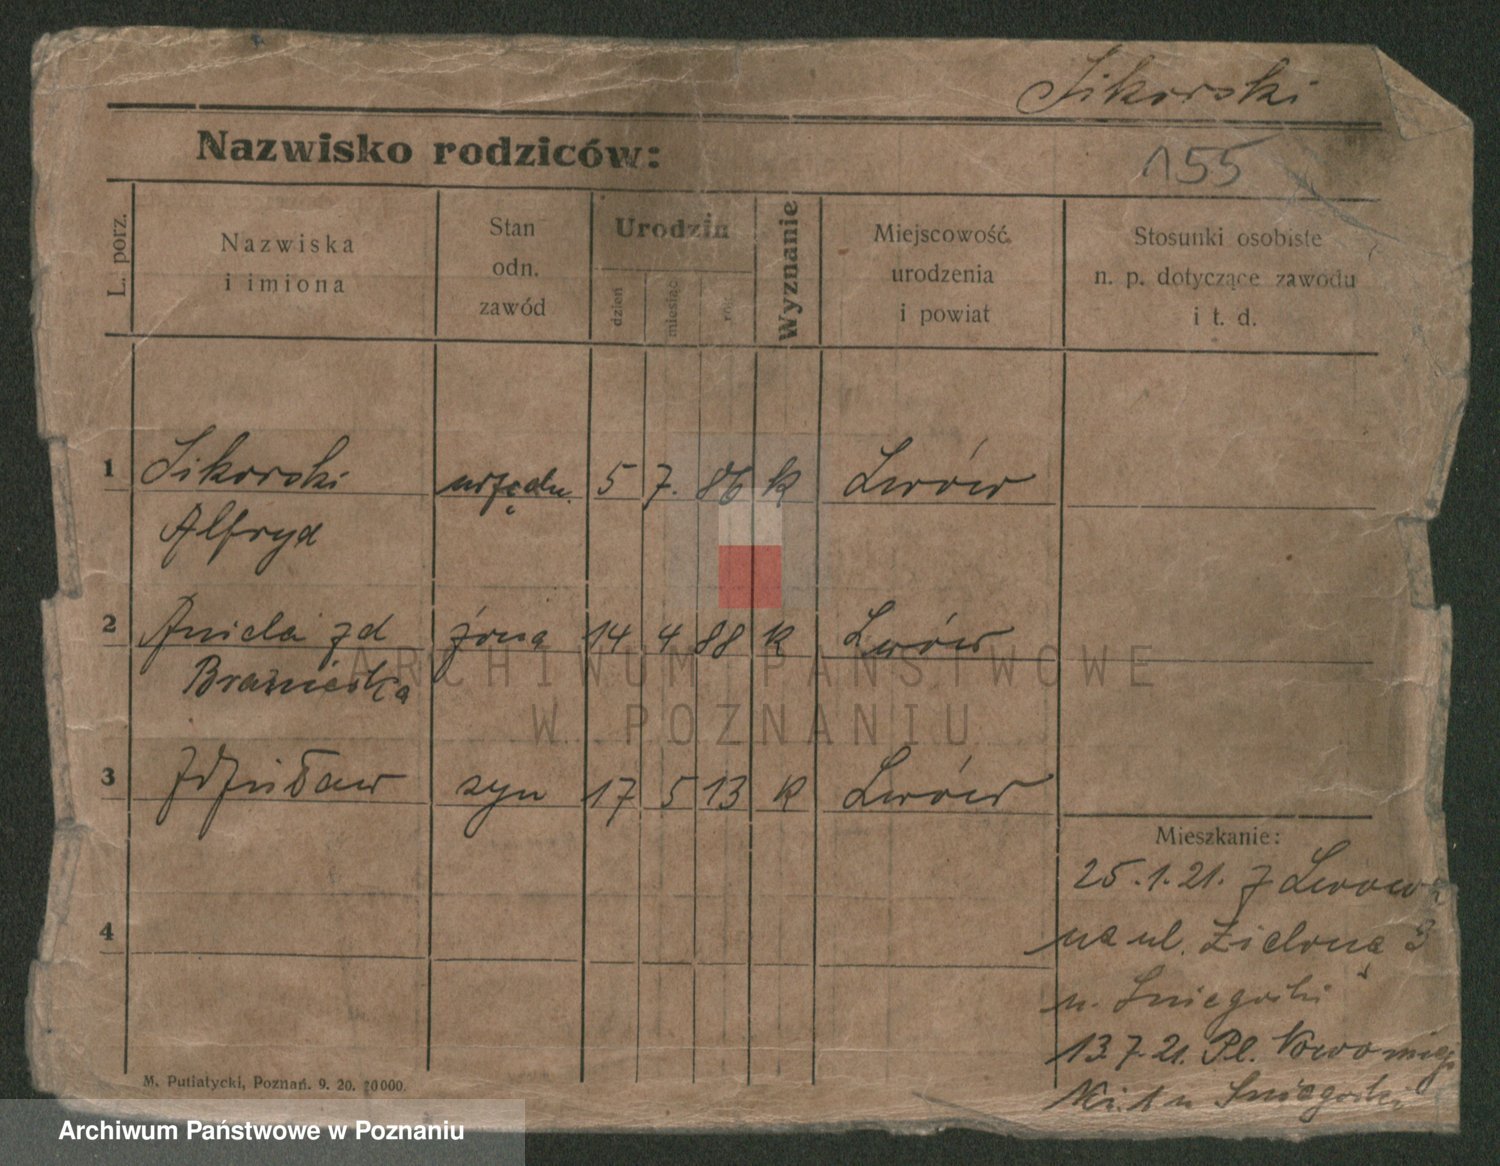 Sikorski
Nazwisko rodziców:
155
L. porz.
Nazwiska
i imiona
Stan
odn.
zawód
Urodzin
dzień
miesiąc
rok
Wyznanie
Miejscowość
urodzenia
i powiat
Stosunki osobiste
n. p. dotyczące zawodu
i t. d.
1 Sikorski urzędn. 5 7. 86 k Lwów
Alfryd
2 Aniela zd żona 14 4 88 k Lwów
3 Zdzisław syn 17 5 13 k Lwów
Mieszkanie:
25.1.21. z Lwowa
na ul. Zieloną 3
u. Śniegocki
4
13.7.21. Pl. Nowomiejski
u Śniegocki
M. Putiatycki, Poznań. 9. 20. 20000.
ARCHIWUM PAŃSTWOWE
W POZNANIU
Archiwum Państwowe w Poznaniu